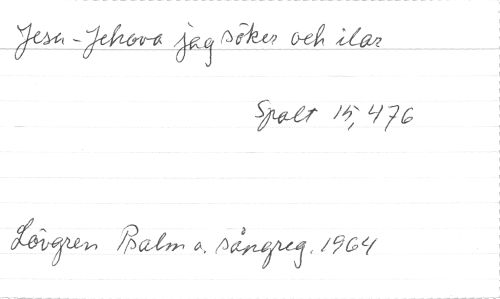 Jesu-Jehova jag söker och ilar
Spalt 15, 476
Lövgren Psalm o. sångreg. 1964